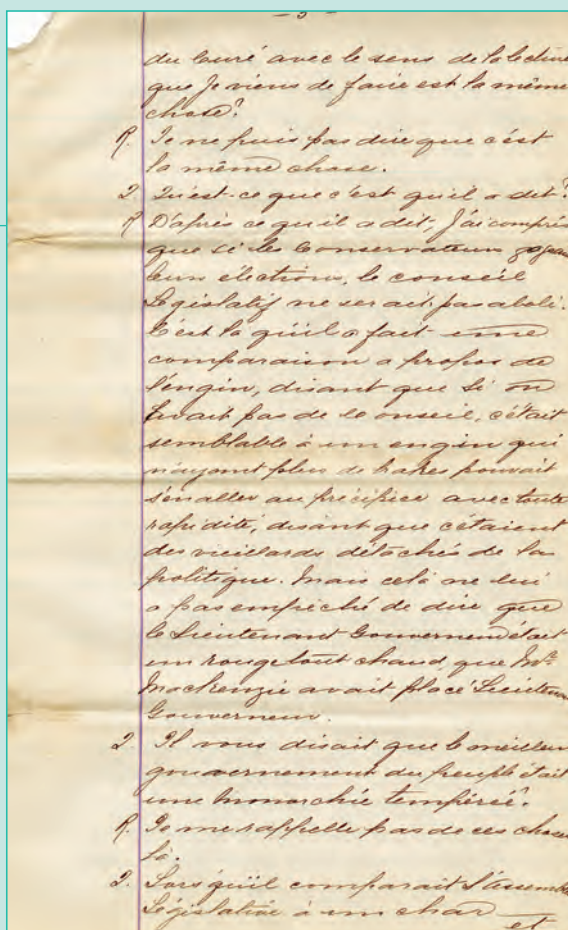 — 5 —
du Curé avec le sens de la lecture
que je viens de faire est la même
chose?
R. Je ne puis pas dire que c'est
la même chose.
Q. Qu'est-ce que c'est qu'il a dit?
R D'après ce qu'il a dit, j'ai compris
que si les Conservateurs
leurs élections, le conseil
Législatif ne serait pas aboli.
C'est là qu'il a fait une
comparaison a propos de
l'engin, disant que si on
avait pas de conseil, c'était
semblable à un engin qui
n'ayant plus de brakes pouvait
s'en aller au précipice avec toute
rapidité, disant que c'étaient
des vieillards détachés de la
politique. Mais celà ne lui
a pas empêché de dire que
le Lieutenant Gouverneur était
un rouge tout chaud, que Mr.
Mackenzie avait placé Lieutenant
Gouverneur.
Q. Il vous disait que le meilleur
gouvernement du peuple était
une monarchie tempérée.
R. Je me rappelle pas de ces choses
là.
Q. Lorsqu'il comparait l'assemblée
Législative à un char
et